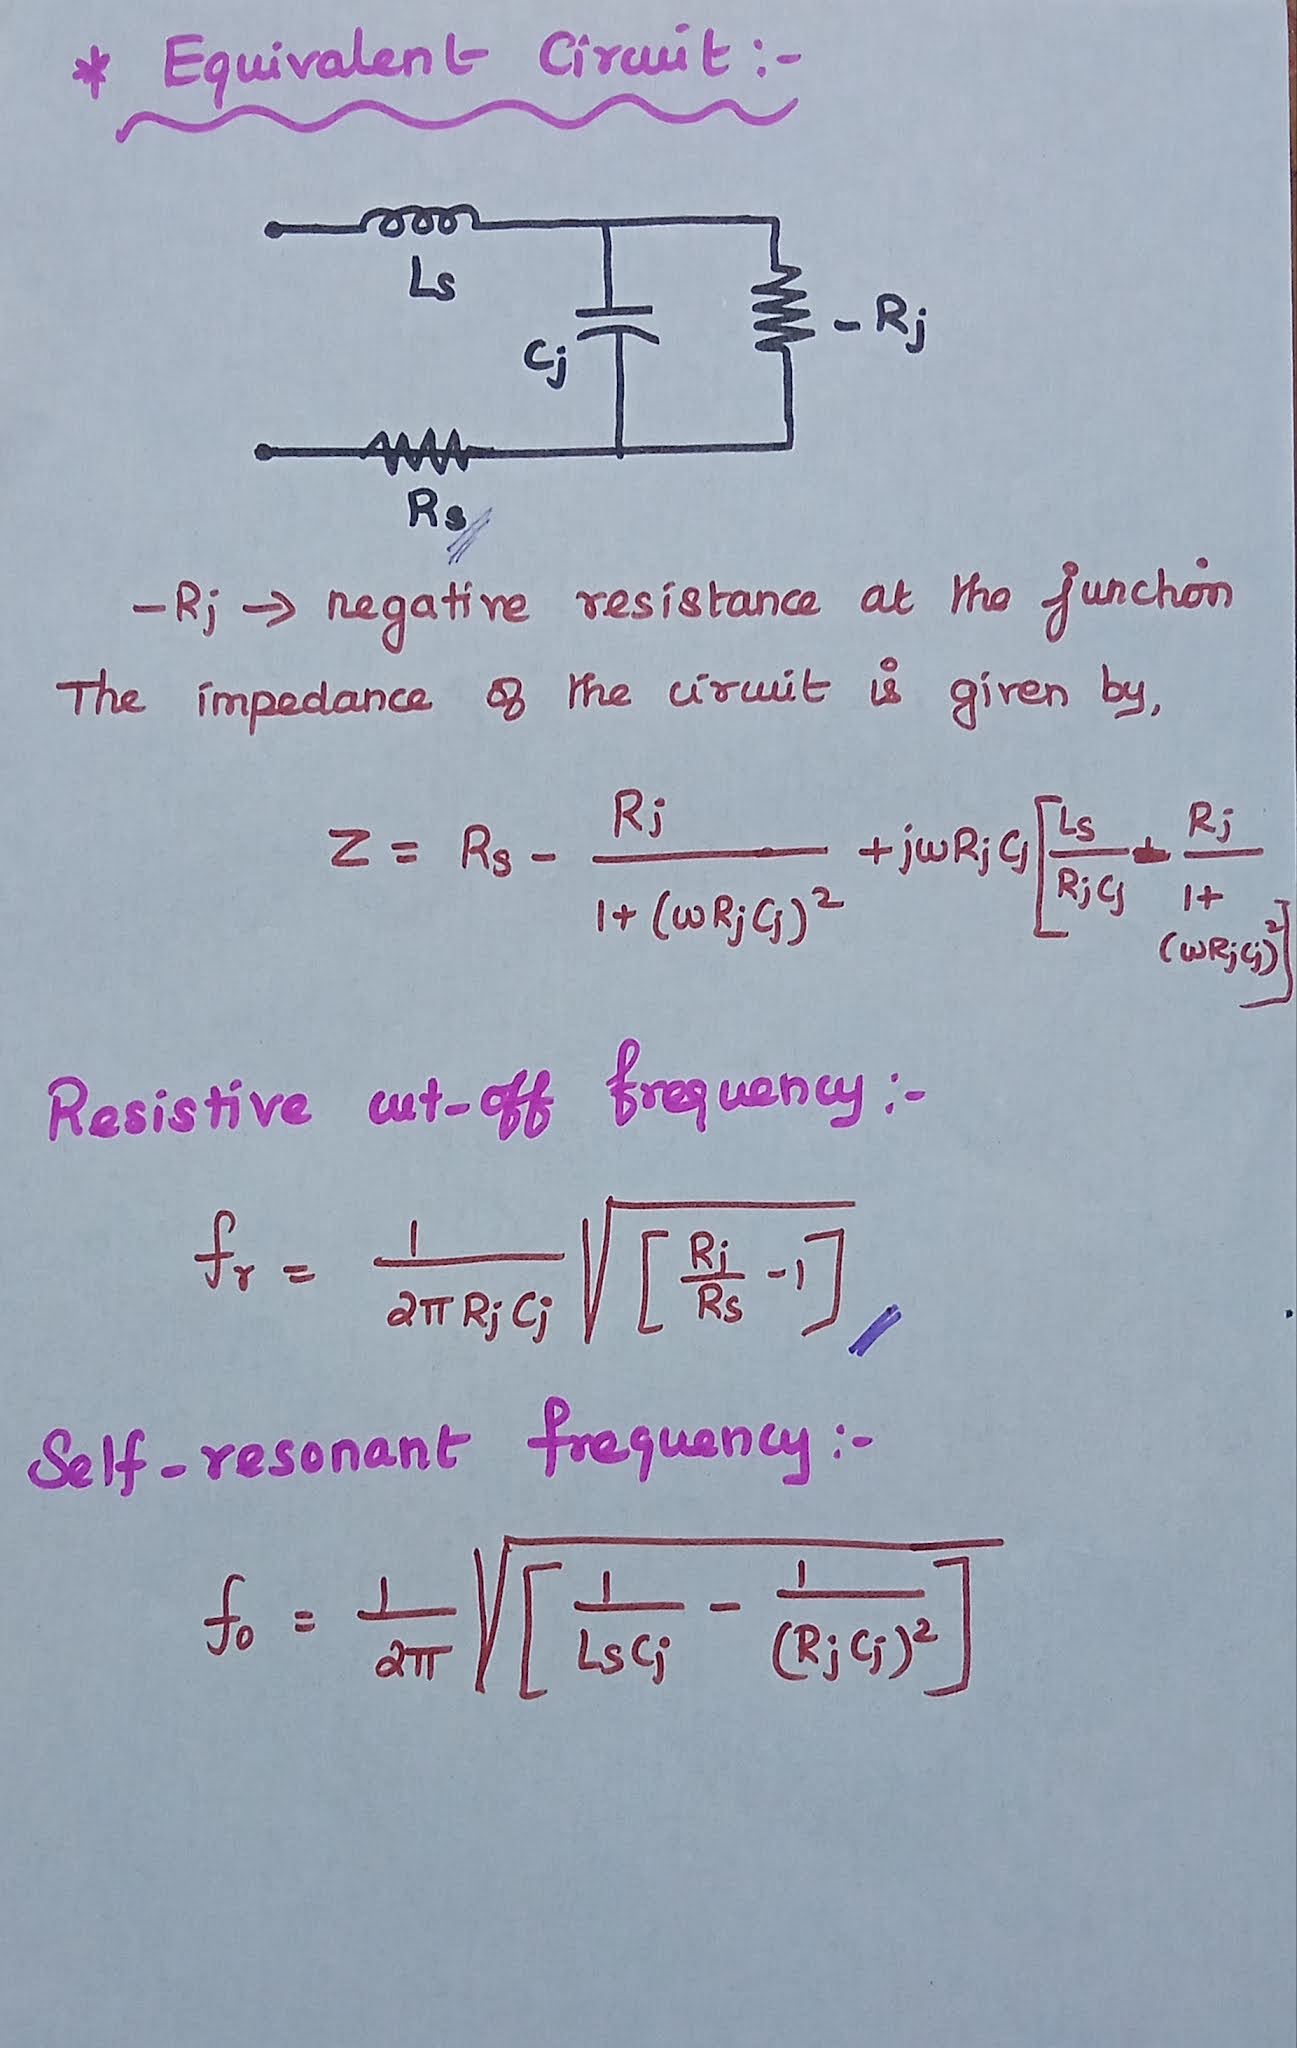 * Equivalent Circuit :-
Ls
Cj
- Rj
Rs
- Rj → negative resistance at the junction
The impedance of the circuit is given by,
Z = Rs - Rj / 1 + (ωRjCj)² + jωRjCj [Ls / RjCj - Rj / 1 + (ωRjCj)²]
Resistive cut-off frequency :-
fr = 1 / 2π Rj Cj √[Rj / Rs - 1]
Self-resonant frequency :-
f₀ = 1 / 2π √[1 / LsCj - 1 / (RjCj)²]